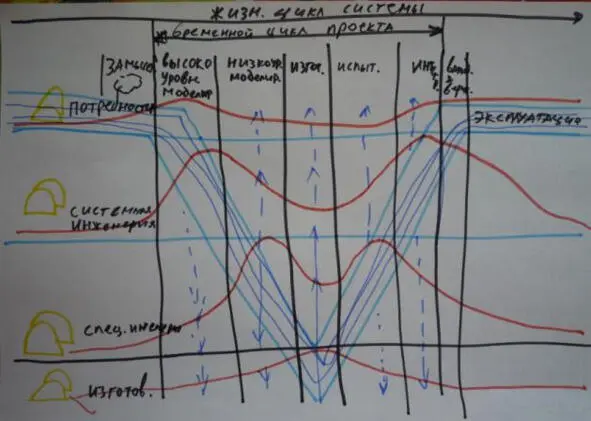 ЖИЗН. ЦИКЛ СИСТЕМЫ
ВРЕМЕННОЙ ЦИКЛ ПРОЕКТА
ЗАМЫС.
ВЫСОКО
УРОВН.
МОДЕЛИР
НИЗКОУР.
МОДЕЛИР
ИЗГОТ.
ИСПЫТ.
ПОТРЕБНОСТИ
ЭКСПЛУАТАЦИЯ
СИСТЕМНАЯ
ИНЖЕНЕРИЯ
СПЕЦ. ИНЖЕНЕРИЯ
ИЗГОТОВ.